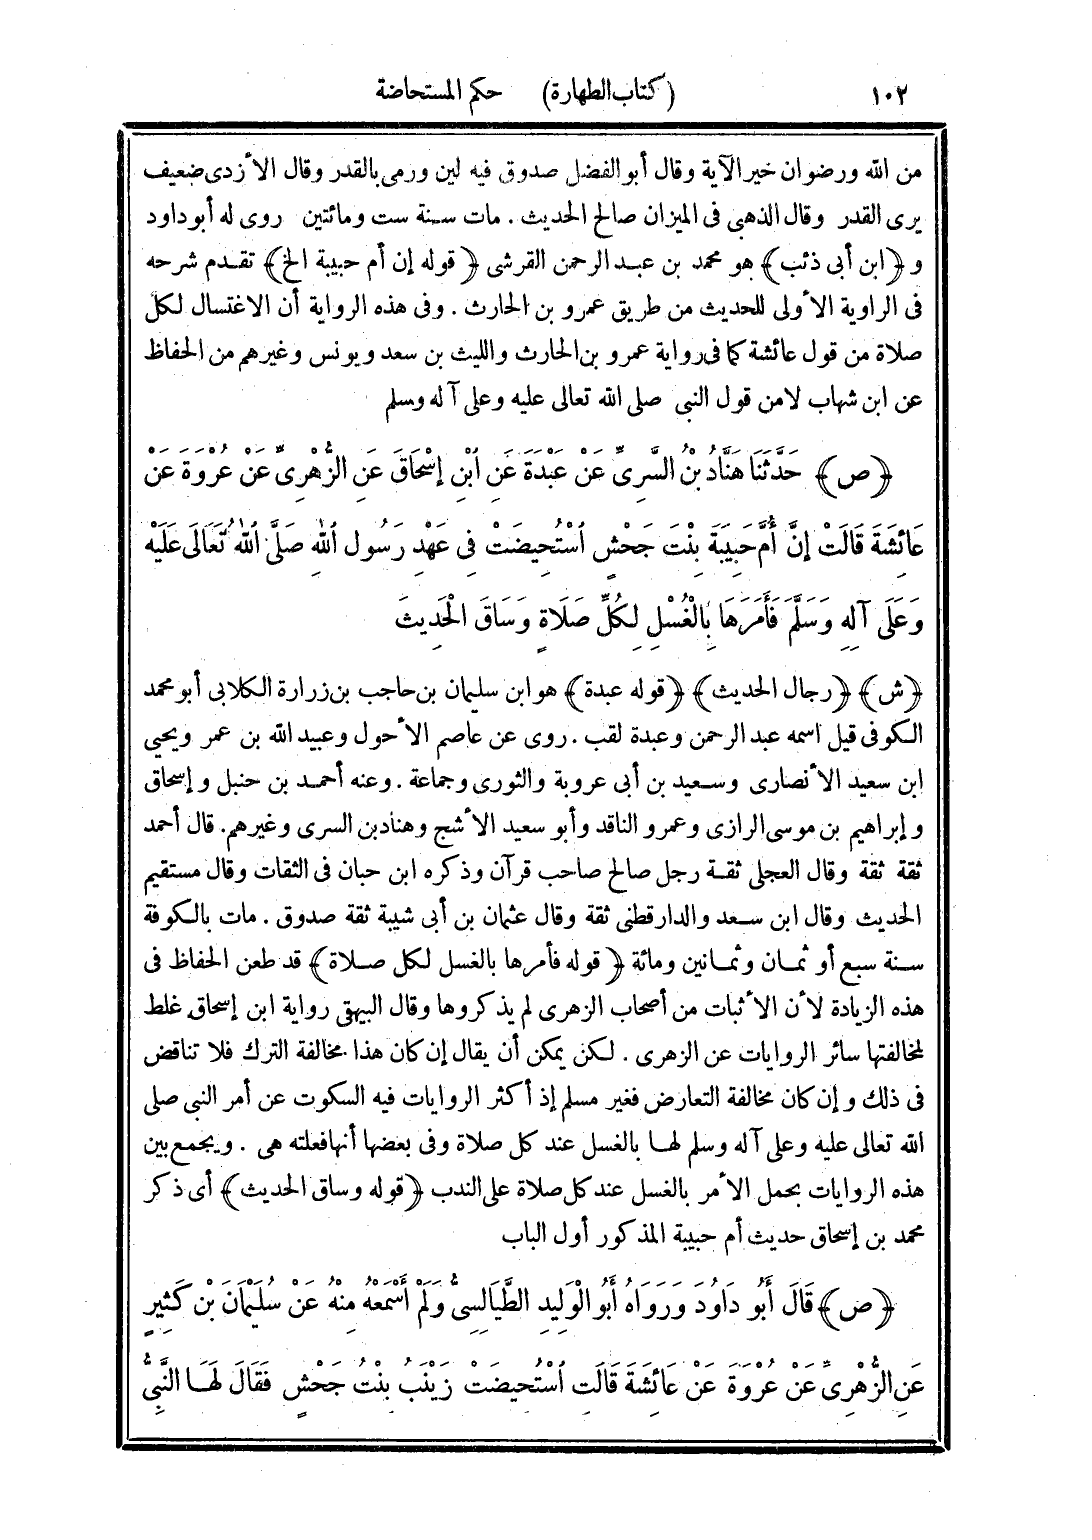 ١٠٢ (كتاب الطهارة) حكم المستحاضة
من الله ورضوان خير الآية وقال أبو الفضل صدوق فيه لين ورمى بالقدر وقال الأزدى ضعيف
يرى القدر وقال الذهبى فى الميزان صالح الحديث . مات سنة ست ومائتين روى له أبو داود
و ﴿ابن أبى ذئب﴾ هو محمد بن عبد الرحمن القرشى ﴿قوله إن أم حبيبة الخ﴾ تقدم شرحه
فى الراوية الأولى للحديث من طريق عمرو بن الحارث . وفى هذه الرواية أن الاغتسال لكل
صلاة من قول عائشة كما فى رواية عمرو بن الحارث والليث بن سعد ويونس وغيرهم من الحفاظ
عن ابن شهاب لا من قول النبى صلى الله تعالى عليه وعلى آله وسلم
﴿ص﴾ حَدَّثَنَا هَنَّادُ بْنُ السَّرِىِّ عَنْ عَبْدَةَ عَنِ ابْنِ إِسْحَاقَ عَنِ الزُّهْرِىِّ عَنْ عُرْوَةَ عَنْ
عَائِشَةَ قَالَتْ إِنَّ أُمَّ حَبِيبَةَ بِنْتَ جَحْشٍ اسْتُحِيضَتْ فِى عَهْدِ رَسُولِ اللهِ صَلَّى اللهُ تَعَالَى عَلَيْهِ
وَعَلَى آلِهِ وَسَلَّمَ فَأَمَرَهَا بِالْغُسْلِ لِكُلِّ صَلَاةٍ وَسَاقَ الْحَدِيثَ
﴿ش﴾ ﴿رجال الحديث﴾ ﴿قوله عبدة﴾ هو ابن سليمان بن حاجب بن زرارة الكلابى أبو محمد
الكوفى قيل اسمه عبد الرحمن وعبدة لقب . روى عن عاصم الأحول وعبيد الله بن عمر ويحيي
ابن سعيد الأنصارى وسعيد بن أبى عروبة والثورى وجماعة . وعنه أحمد بن حنبل وإسحاق
وإبراهيم بن موسى الرازى وعمرو الناقد وأبو سعيد الأشج وهناد بن السرى وغيرهم . قال أحمد
ثقة ثقة وقال العجلى ثقة رجل صالح صاحب قرآن وذكره ابن حبان فى الثقات وقال مستقيم
الحديث وقال ابن سعد والدارقطنى ثقة وقال عثمان بن أبى شيبة ثقة صدوق . مات بالكوفة
سنة سبع أو ثمان وثمانين ومائة ﴿قوله فأمرها بالغسل لكل صلاة﴾ قد طعن الحفاظ فى
هذه الزيادة لأن الأثبات من أصحاب الزهرى لم يذكروها وقال البيهقى رواية ابن إسحاق غلط
لمخالفتها سائر الروايات عن الزهرى . لكن يمكن أن يقال إن كان هذا مخالفة الترك فلا تناقض
فى ذلك وإن كان مخالفة التعارض فغير مسلم إذ أكثر الروايات فيه السكوت عن أمر النبى صلى
الله تعالى عليه وعلى آله وسلم لها بالغسل عند كل صلاة وفى بعضها أنها فعلته هى . ويجمع بين
هذه الروايات بحمل الأمر بالغسل عند كل صلاة على الندب ﴿قوله وساق الحديث﴾ أى ذكر
محمد بن إسحاق حديث أم حبيبة المذكور أول الباب
﴿ص﴾ قَالَ أَبُو دَاوُدَ وَرَوَاهُ أَبُو الْوَلِيدِ الطَّيَالِسِىُّ وَلَمْ أَسْمَعْهُ مِنْهُ عَنْ سُلَيْمَانَ بْنِ كَثِيرٍ
عَنِ الزُّهْرِىِّ عَنْ عُرْوَةَ عَنْ عَائِشَةَ قَالَتِ اسْتُحِيضَتْ زَيْنَبُ بِنْتُ جَحْشٍ فَقَالَ لَهَا النَّبِىُّ